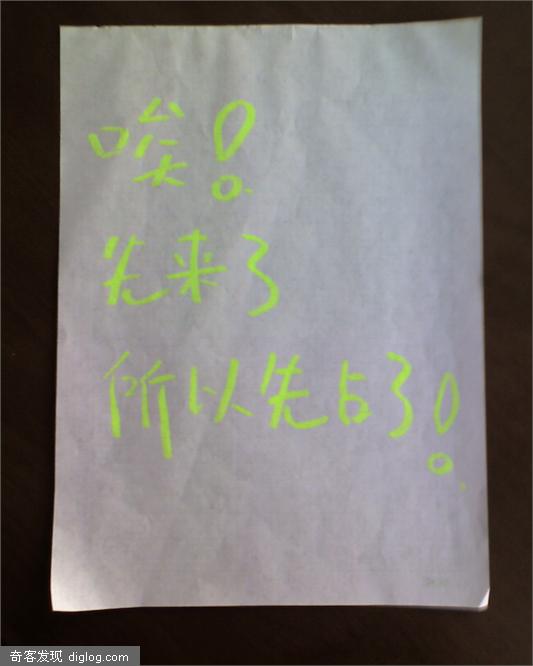 唉！
先来了
所以先占了！
奇客发现 diglog.com